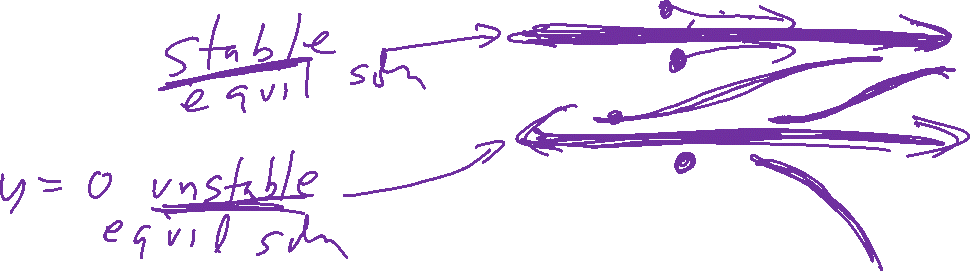 stable
equil soln
y = 0 unstable
equil soln